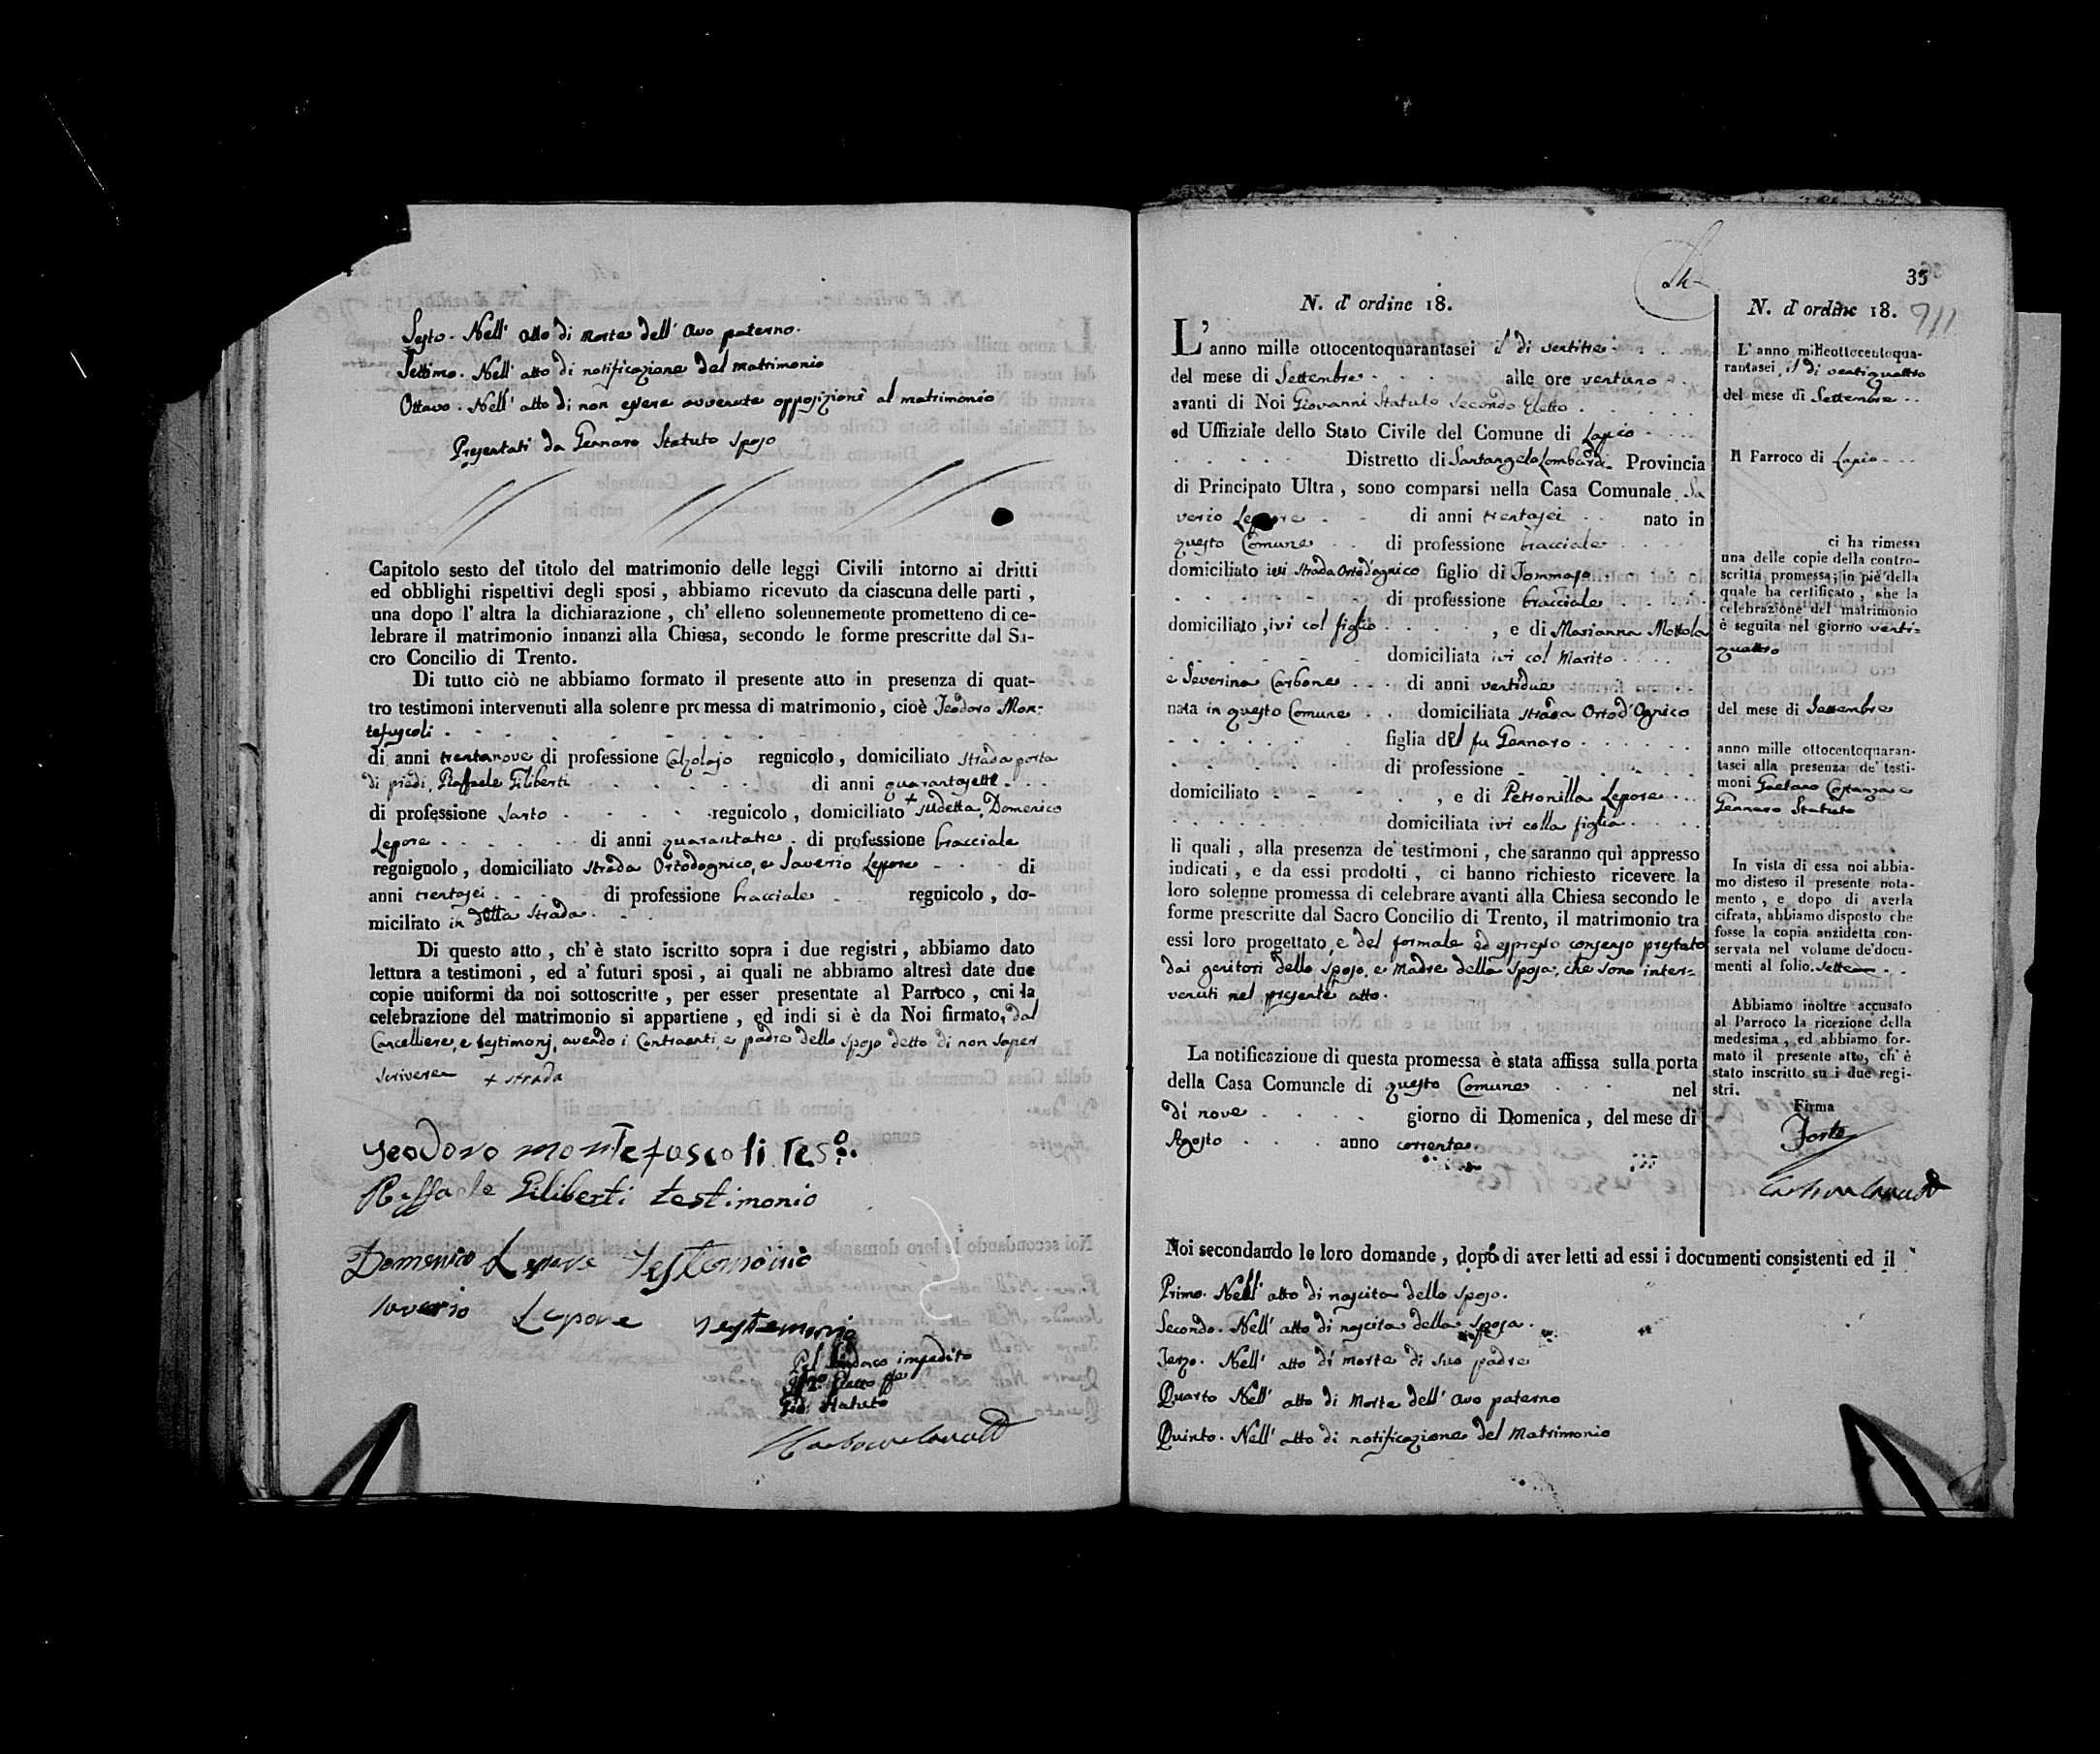 Sesto. Nell' atto di morte dell' avo paterno.
Settimo. Nell' atto di notificazione del matrimonio
Ottavo. Nell' atto di non essere avvenute opposizioni al matrimonio
Presentati da Gennaro Statuto sposo
Capitolo sesto del titolo del matrimonio delle leggi Civili intorno ai dritti
ed obblighi rispettivi degli sposi, abbiamo ricevuto da ciascuna delle parti,
una dopo l'altra la dichiarazione, ch' elleno solennemente prometteno di ce-
lebrare il matrimonio innanzi alla Chiesa, secondo le forme prescritte dal Sa-
cro Concilio di Trento.
Di tutto ciò ne abbiamo formato il presente atto in presenza di quat-
tro testimoni intervenuti alla solenne promessa di matrimonio, cioè Teodoro Mon-
tefuscoli
di anni trentanove di professione Calzolajo regnicolo, domiciliato Strada porta
di piedi, Raffaele Giliberti di anni quarantasette
di professione Sarto regnicolo, domiciliato + sudetta, Domenico
Lepore di anni quarantatre di professione bracciale
regnignolo, domiciliato Strada Ortodognico, e Saverio Lepore di
anni trentasei di professione bracciale regnicolo, do-
miciliato in detta Strada.
Di questo atto, ch' è stato iscritto sopra i due registri, abbiamo dato
lettura a testimoni, ed a' futuri sposi, ai quali ne abbiamo altresì date due
copie uniformi da noi sottoscritte, per esser presentate al Parroco, cui la
celebrazione del matrimonio si appartiene, ed indi si è da Noi firmato, dal
Cancelliere, e testimonj, avendo i Contraenti, e padre dello sposo detto di non saper
scrivere + strada
Teodoro montefuscoli Tes.o
Raffaele Giliberti testimonio
Domenico Lepore Testemonio
saverio Lepore testemonio
Pel Sindaco impedito
Gio: Statuto
35
N. d' ordine 18.
L' anno mille ottocentoquarantasei il dì ventitre
del mese di Settembre alle ore ventuno
avanti di Noi Giovanni Statuto Secondo Eletto
ed Uffiziale dello Stato Civile del Comune di Lapio
Distretto di Santangelo Lombardi Provincia
di Principato Ultra, sono comparsi nella Casa Comunale Sa
verio Lepore di anni trentasei nato in
questo Comune di professione bracciale
domiciliato ivi Strada Ortod'ognico figlio di Tommaso
di professione bracciale
domiciliato, ivi col figlio, e di Marianna Mottola
domiciliata ivi col Marito
e Severina Carbone di anni ventidue
nata in questo Comune domiciliata strada Ortod'Ognico
figlia del fu Gennaro
di professione
domiciliato, e di Petronilla Lepore
domiciliata ivi colla figlia
li quali, alla presenza de' testimoni, che saranno quì appresso
indicati, e da essi prodotti, ci hanno richiesto ricevere la
loro solenne promessa di celebrare avanti alla Chiesa secondo le
forme prescritte dal Sacro Concilio di Trento, il matrimonio tra
essi loro progettato, e del formale ed espresso consenso prestato
dai genitori dello sposo, e Madre della sposa, che sono inter-
venuti nel presente atto.
La notificazione di questa promessa è stata affissa sulla porta
della Casa Comunale di questo Comune nel
dì nove giorno di Domenica, del mese di
Agosto anno corrente.
N. d' ordine 18.
911
L' anno milleottocentoqua-
rantasei, il dì ventiquattro
del mese di Settembre
Il Parroco di Lapio
ci ha rimessa
una delle copie della contro-
scritta promessa; in piè della
quale ha certificato, che la
celebrazione del matrimonio
è seguita nel giorno venti-
quattro
del mese di Settembre
anno mille ottocentoquaran-
tasei alla presenza de' testi-
moni Gaetano Costanza e
Gennaro Statuto
In vista di essa noi abbia-
mo disteso il presente nota-
mento, e dopo di averla
cifrata, abbiamo disposto che
fosse la copia anzidetta con-
servata nel volume de'docu-
menti al folio.
Abbiamo inoltre accusato
al Parroco la ricezione della
medesima, ed abbiamo for-
mato il presente atto, ch' è
stato inscritto su i due regi-
stri.
Firma
Noi secondando le loro domande, dopo di aver letti ad essi i documenti consistenti ed il
Primo. Nell' atto di nascita dello sposo.
Secondo. Nell' atto di nascita della sposa.
Terzo. Nell' atto di morte di suo padre
Quarto Nell' atto di Morte dell' avo paterno
Quinto. Nell' atto di notificazione del Matrimonio